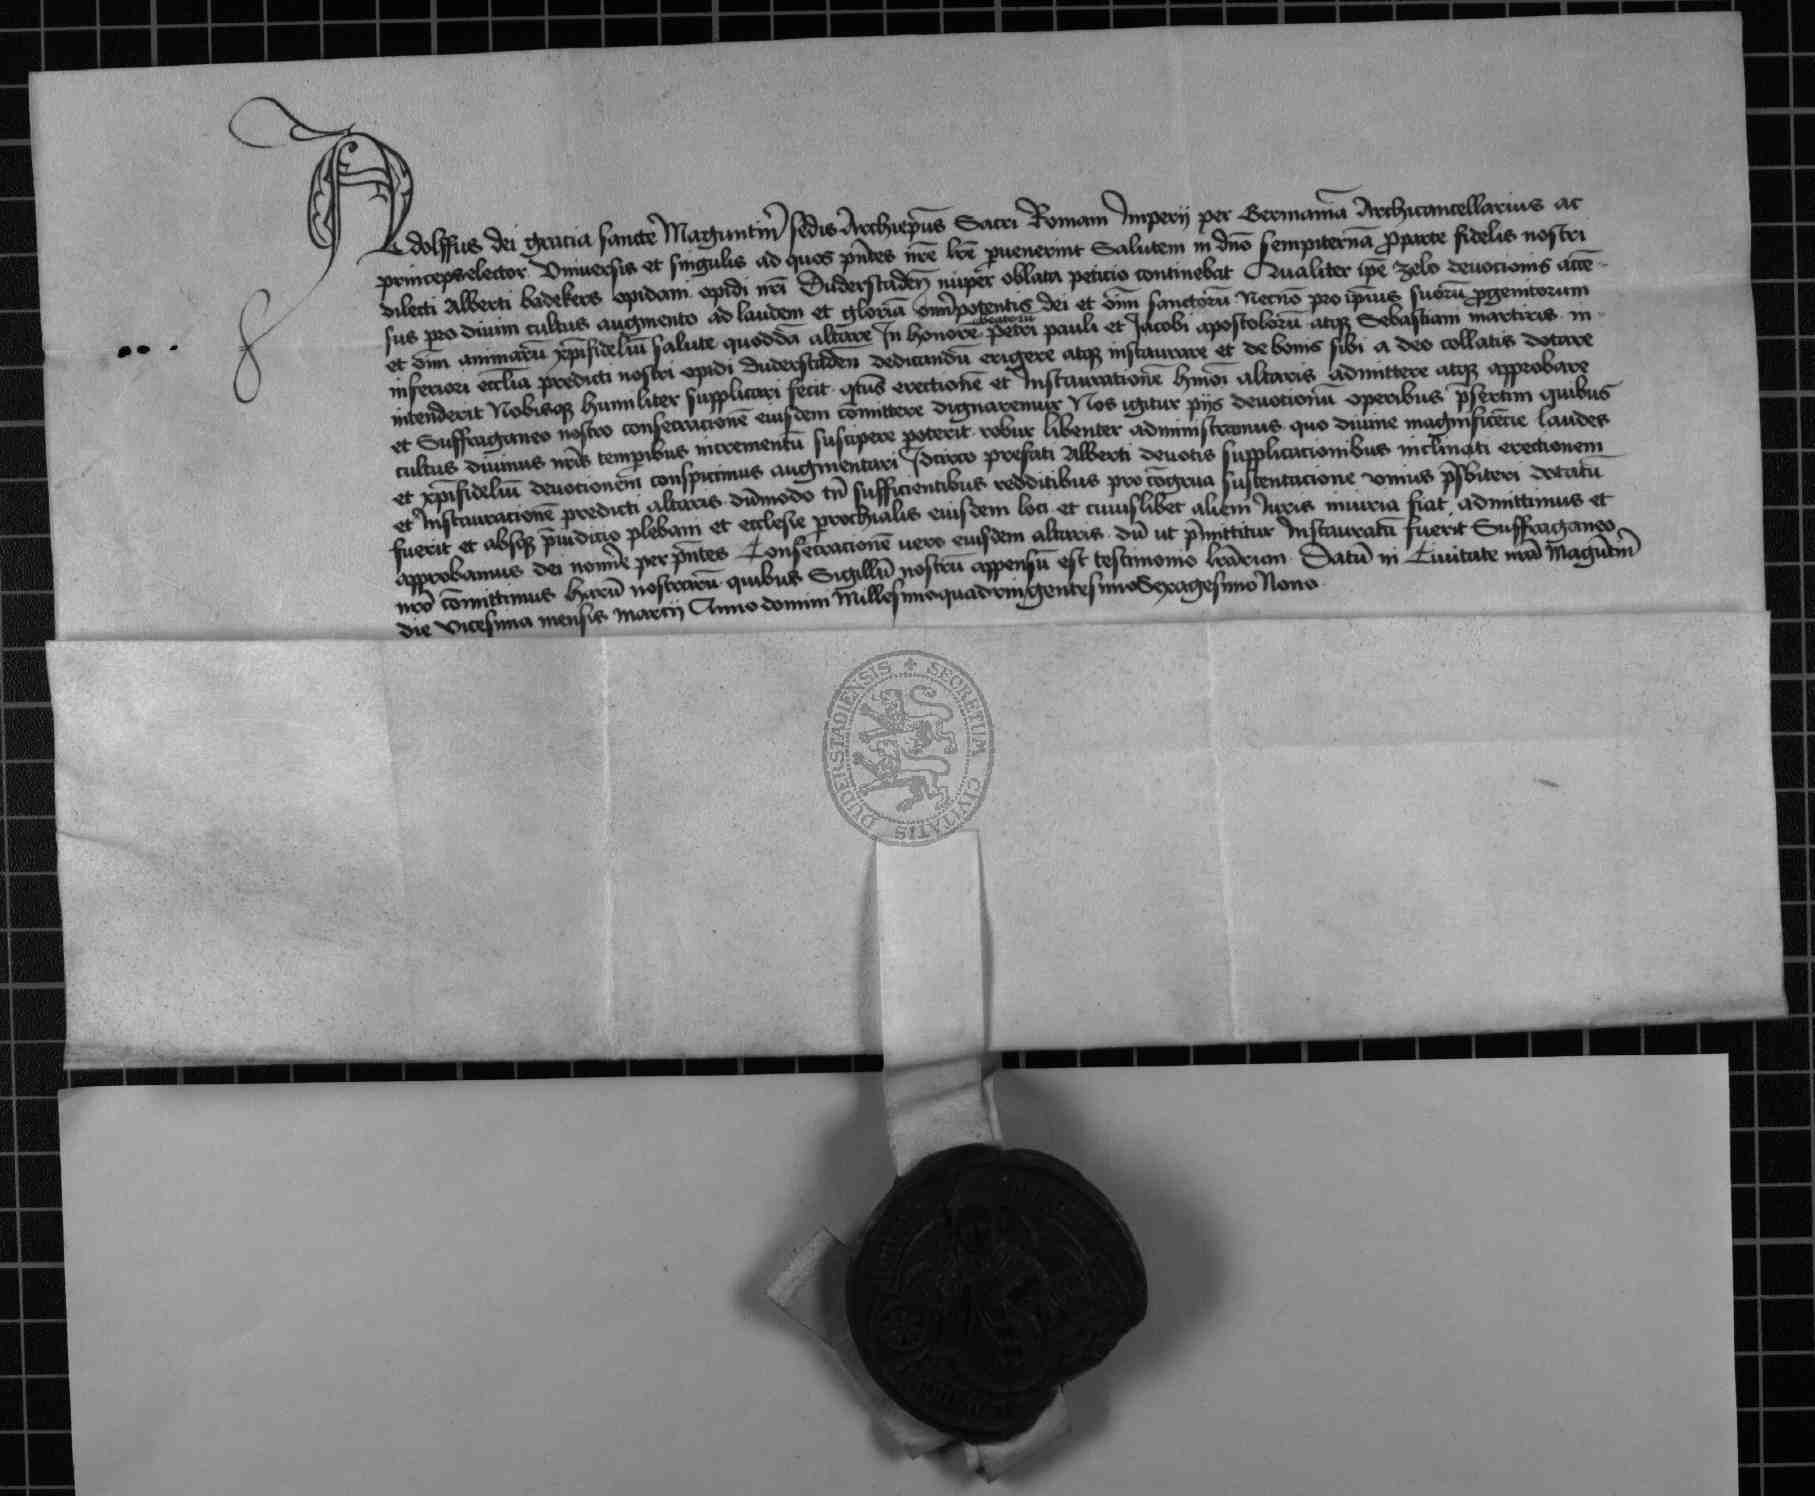 Adolffus dei gracia sancte Maguntin̄ sedis Archiep̄us Sacri Romani Imperij per Germaniā Archicancellarius ac
princeps elector Vniuersis et singulis ad quos pn̄tes nr̄e lr̄e puenerint Salutem in dn̄o sempiternā Pro parte fidelis nostri
dilecti Alberti badekers opidani opidi nr̄i Duderstaden̄ nuper oblata peticio continebat Qualiter ip̄e zelo deuocionis accē-
sus pro diuini cultus augmento ad laudem et gloriā omīpotentis dei et om̄i sanctorū Necnō pro ip̄ius suorū pgenitorum
et om̄i animarū xp̄ifideliū salute quoddā altare In honorē beatorū Petri pauli et Jacobi apostolorū atqꝫ Sebastiani martiris in
inferiori eccl̄ia predicti nostri opidi Duderstaden̄ dedicandū erigere atqꝫ instaurare et de bonis sibi a deo collatis dotare
intenderit Nobisqꝫ humiliter supplicari fecit qt̄us erectionē et Instaurationē hmōi altaris admittere atqꝫ approbare
et Suffraganeo nostro consecracionē eiusdem cōmittere dignaremur Nos igitur pijs deuotionū operibus p̄sertim quibus
cultus diuinus nr̄is temporibus incrementū suscipere poterit robur libenter administramus quo diuine magnificēcie laudes
et xp̄ifideliū deuocionem conspicimus augmentari Idcirco prefati Alberti deuotis supplicacionibus inclinati erectionem
et Instauracionē predicti altaris dūmodo tn̄ sufficientibus redditibus pro cōgrua sustentacione vnius p̄sbiteri dotatū
fuerit et absqꝫ p̄iudicio plebani et ecclesie parochialis eiusdem loci et cuiuslibet alieni Juris iniuria fiat admittimus et
approbamus dei noīe per pn̄tes Consecracionē vero eiusdem altaris dū ut p̄mittitur Instauratū fuerit Suffraganeo
nr̄o cōmittimus harū nostrarū quibus Sigillū nostrū appensū est testimonio lr̄arum Datū in Ciuitate nr̄a Magūtin̄
die vicesima mensis marcij Anno domini MillesimoquadringentesimoSexagesimo Nono
SECRETUM CIVITATIS DUDERSTADIENSIS